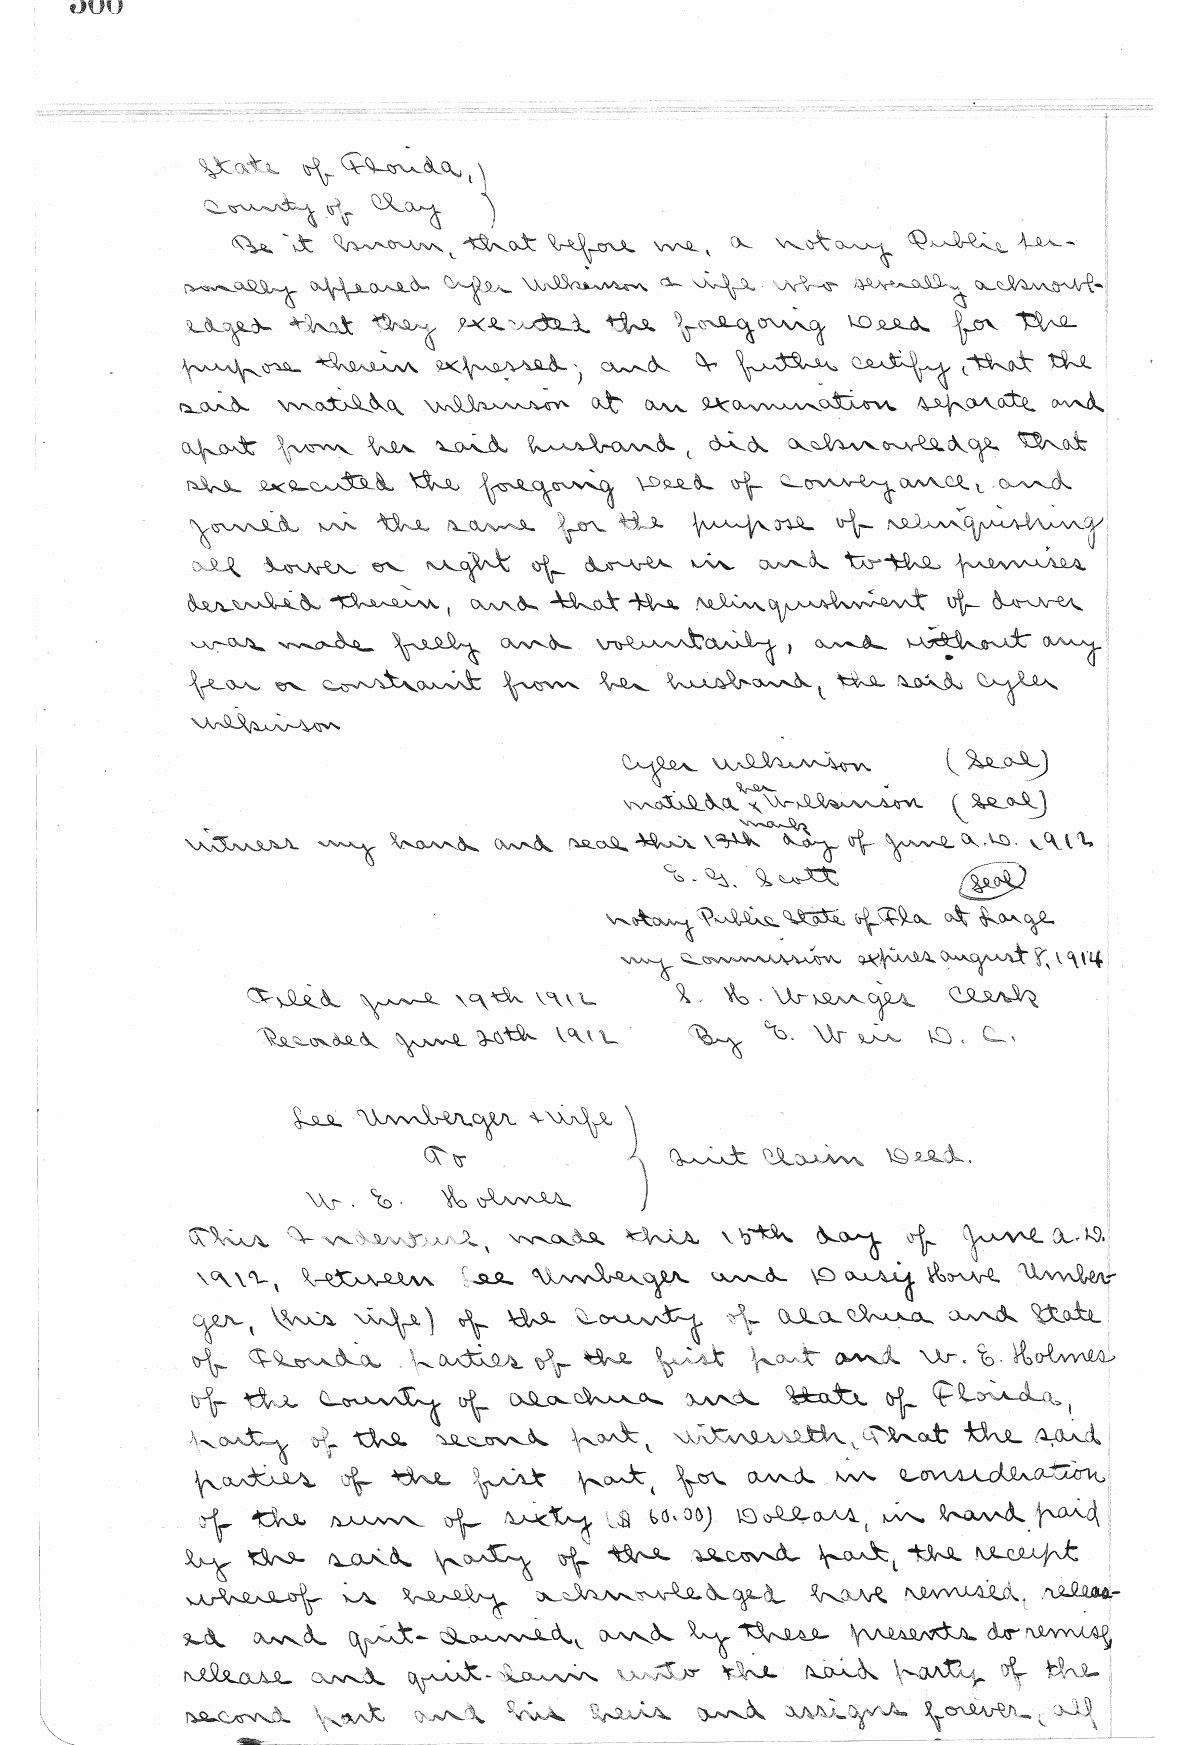 State of Florida, }
County of Clay }
Be it known, that before me, a notary Public per-
sonally appeared Cyler Wilkinson & wife who severally acknowl-
edged that they executed the foregoing Deed for the
purpose therein expressed; and I further certify, that the
said Matilda Wilkinson at an examination separate and
apart from her said husband, did acknowledge that
she executed the foregoing Deed of Conveyance, and
joined in the same for the purpose of relinquishing
all dower or right of dower in and to the premises
described therein, and that the relinquishment of dower
was made freely and voluntarily, and without any
fear or constraint from her husband, the said Cyler
Wilkinson
Cyler Wilkinson (Seal)
her
Matilda x Wilkinson (Seal)
mark
Witness my hand and seal this 13th day of June A.D. 1912
E. G. Scott Seal
Notary Public State of Fla at Large
My Commission expires August 8, 1914
Filed June 19th 1912 S. H. Wienges Clerk
Recorded June 20th 1912 By E. Weir D. C.
Lee Umberger & wife }
To } Quit Claim Deed.
W. E. Holmes }
This Indenture, made this 15th day of June A.D.
1912, between Lee Umberger and Daisy Howe Umber-
ger, (his wife) of the County of Alachua and State
of Florida parties of the first part and W. E. Holmes
of the County of Alachua and State of Florida,
party of the second part, witnesseth, That the said
parties of the first part, for and in consideration
of the sum of sixty ($ 60.00) Dollars, in hand paid
by the said party of the second part, the receipt
whereof is hereby acknowledged have remised, releas-
ed and quit-claimed, and by these presents do remise,
release and quit-claim unto the said party of the
second part and his heirs and assigns forever, all